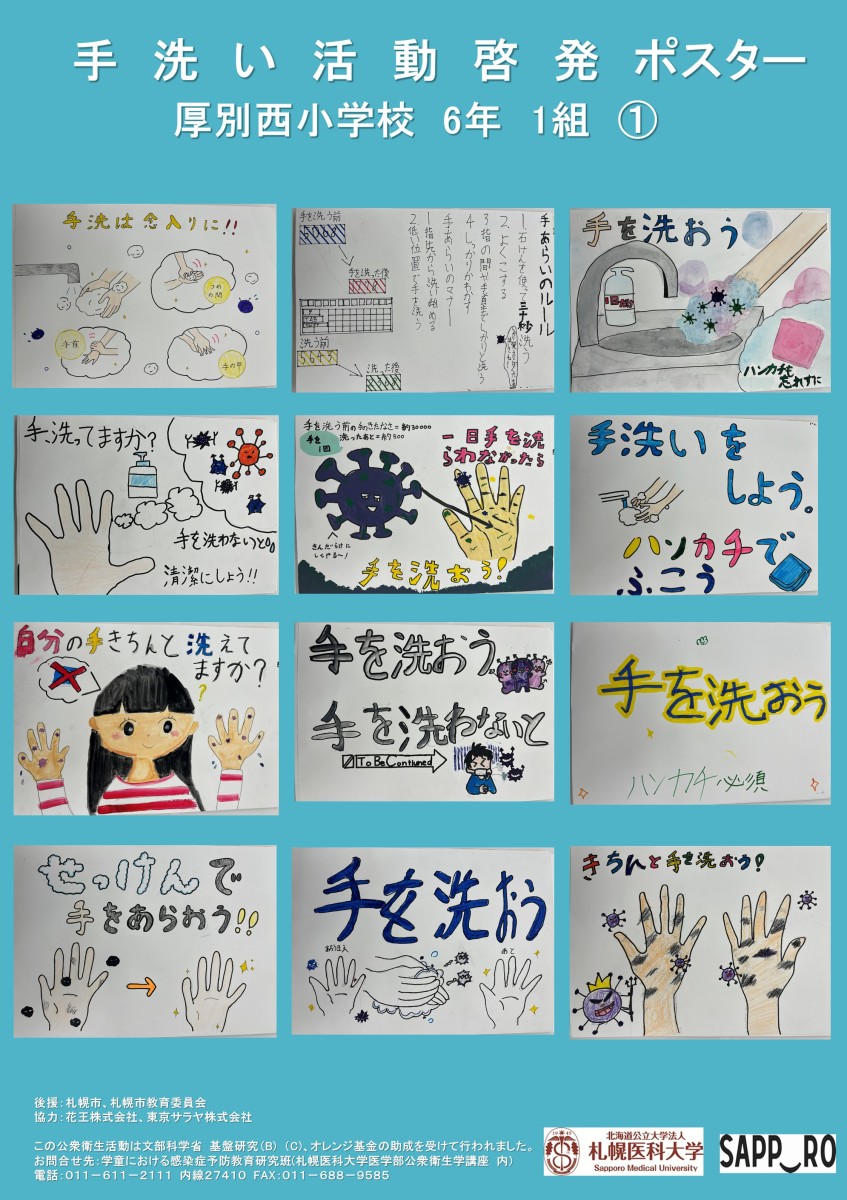 手洗い活動啓発ポスター
厚別西小学校 6年 1組 ①
手洗は念入りに!!
つめの間
手首
手の甲
手あらいのルール
1.石けんを使って三十秒洗う
2.よくこする
3指の間や手首までしっかりと洗う
4しっかりかわかす
手あらいのマナー
1指先から洗い始める
2低い位置で手を洗う
手を洗う前
手を洗った後
洗う前
5643
洗った後
手を洗おう
ハンカチも
忘れずに
手洗ってますか?
手を洗わないと。。
清潔にしよう!!
手を洗う前の手のきたなさ=約30000
手を
1回
洗ったあと=約500
一日手を洗
らわなかったら
きんだらけに
してやる〜!
手を洗おう!
手洗いを
しよう。
ハンカチで
ふこう
自分の手きちんと洗えて
ますか?
?
手を洗おう
手を洗わないと
To Be Contiuned
手を洗おう
ハンカチ必須
せっけんで
手をあらおう!!
手を洗おう
あと
きちんと手を洗おう!
後援:札幌市、札幌市教育委員会
協力:花王株式会社、東京サラヤ株式会社
この公衆衛生活動は文部科学省 基盤研究(B) (C)、オレンジ基金の助成を受けて行われました。
お問合せ先:学童における感染症予防教育研究班(札幌医科大学医学部公衆衛生学講座 内)
電話:011-611-2111 内線27410 FAX:011-688-9585
北海道公立大学法人
札幌医科大学
Sapporo Medical University
SAPP_RO